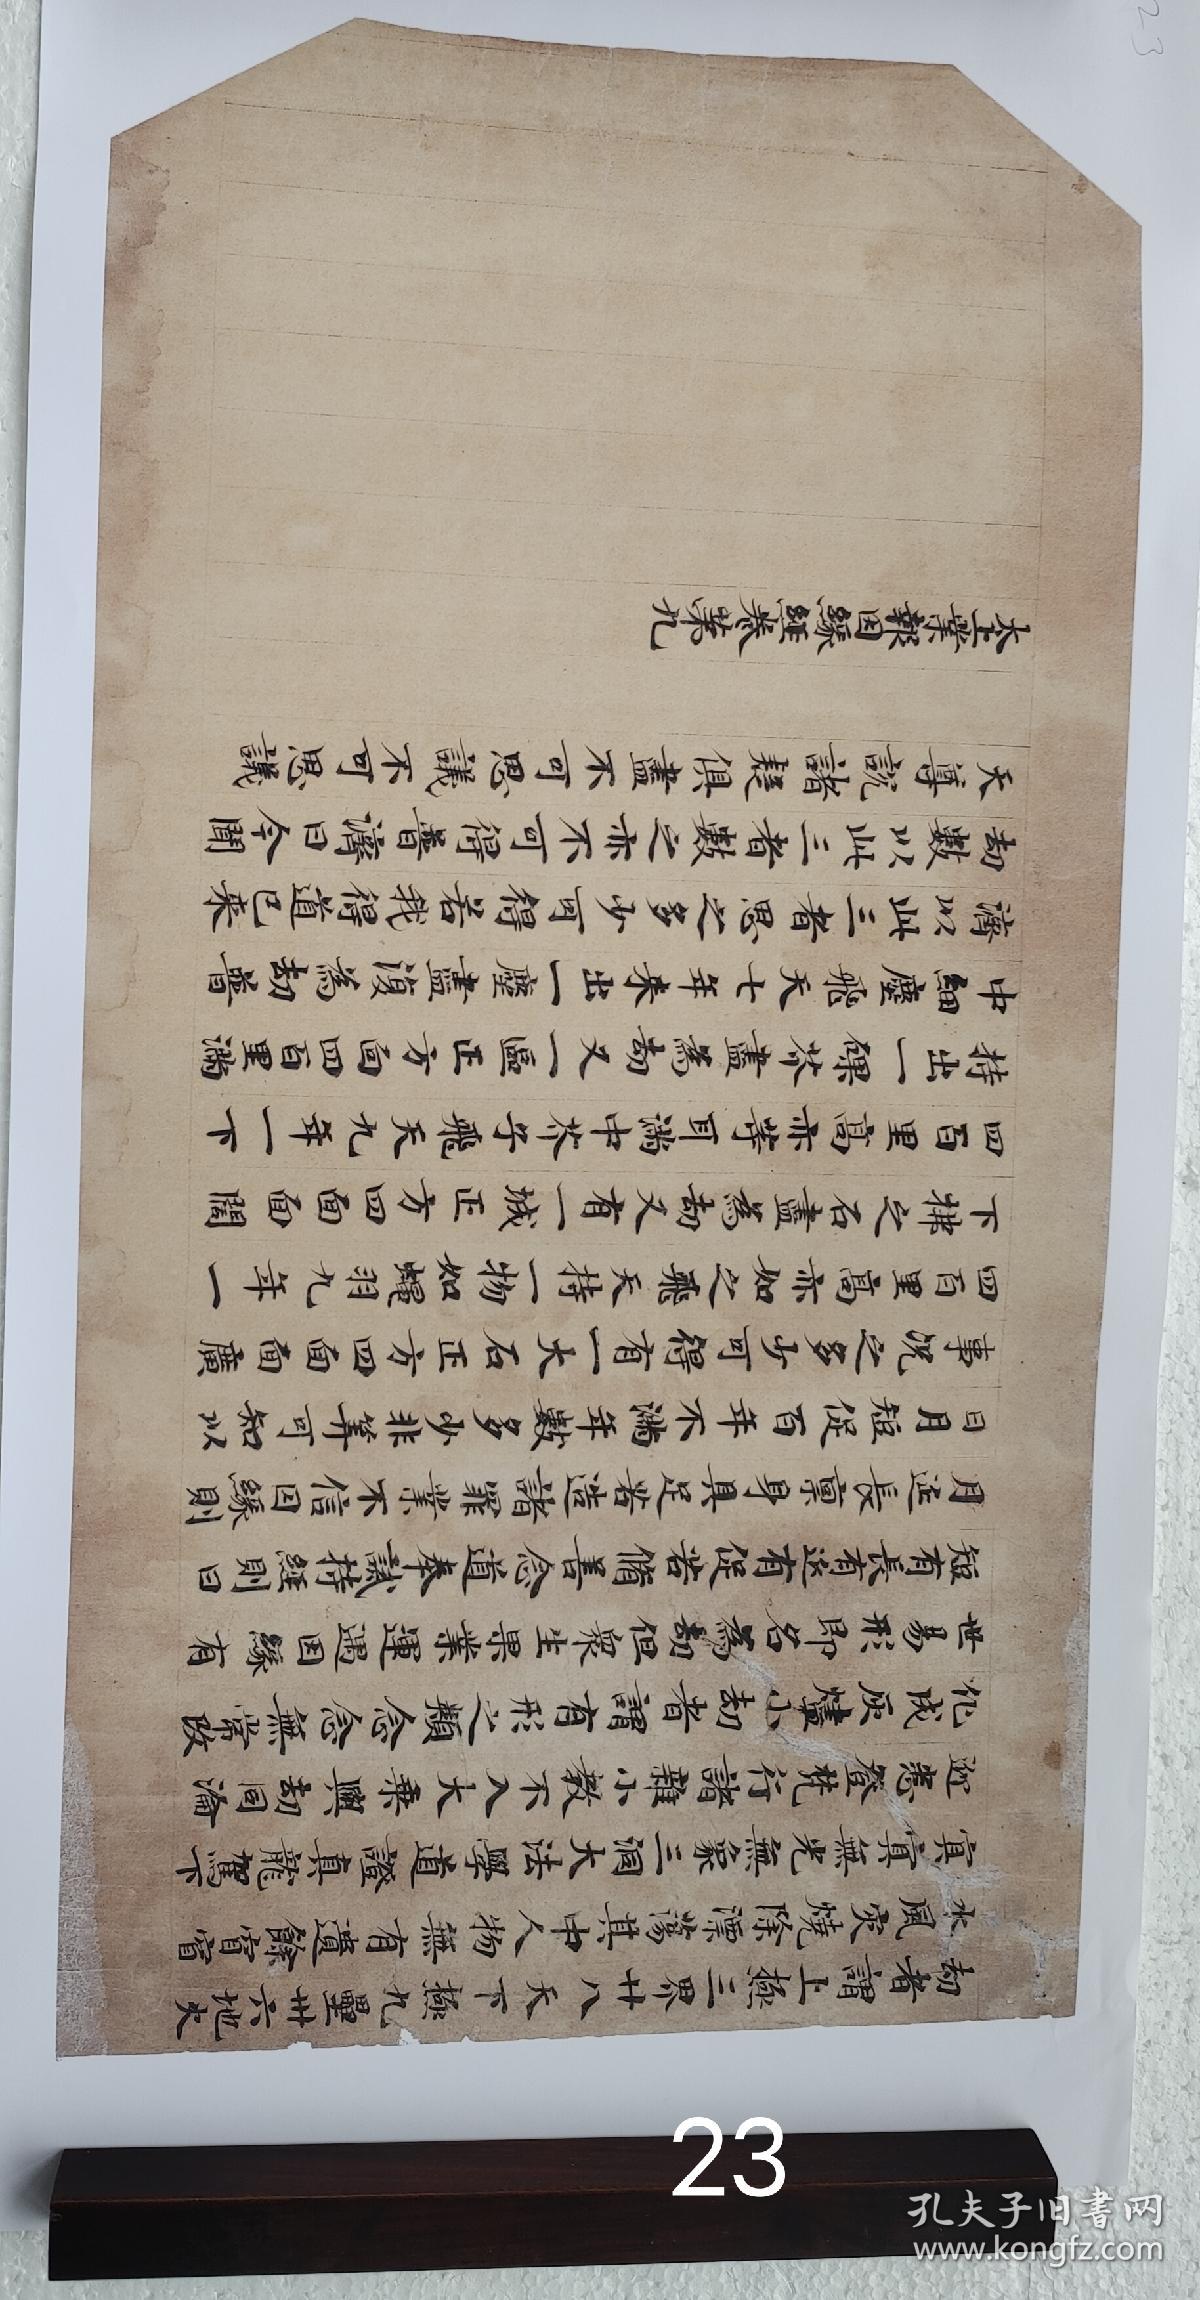 劫者謂上極三界廿八天下極九壘卅六地火
水風灾燒除漂蕩其中人物無有遺餘窅窅
冥冥無光無象三洞大法學道證真龍駕下
迎悉登梵行諸雜小教不入大乘與劫同淪
化成灰燼小劫者謂有形之類念念無常改
世易形即名為劫但衆生果業運遇因緣有
短有長有延有促若脩善念道奉誡持經則日
月延長稟身具足若造諸罪業不信因緣則
日月短促百年不滿年數多少非筭可知以
事況之多少可得有一大石正方四面面廣
四百里高亦如之飛天持一物如蠅羽九年一
下拂之石盡為劫又有一城正方四面面闊
四百里高亦等耳滿中芥子飛天九年一下
持出一粿芥盡為劫又一區正方面四百里滿
中細塵飛天七年来出一塵盡復為劫普
濟以此三者思之多少可得若我得道已来
劫數以此三者數之亦不可得普濟曰今聞
天尊說諸疑俱盡不可思議不可思議
太上業報因緣經卷第九
23
23
孔夫子旧书网
www.kongfz.com